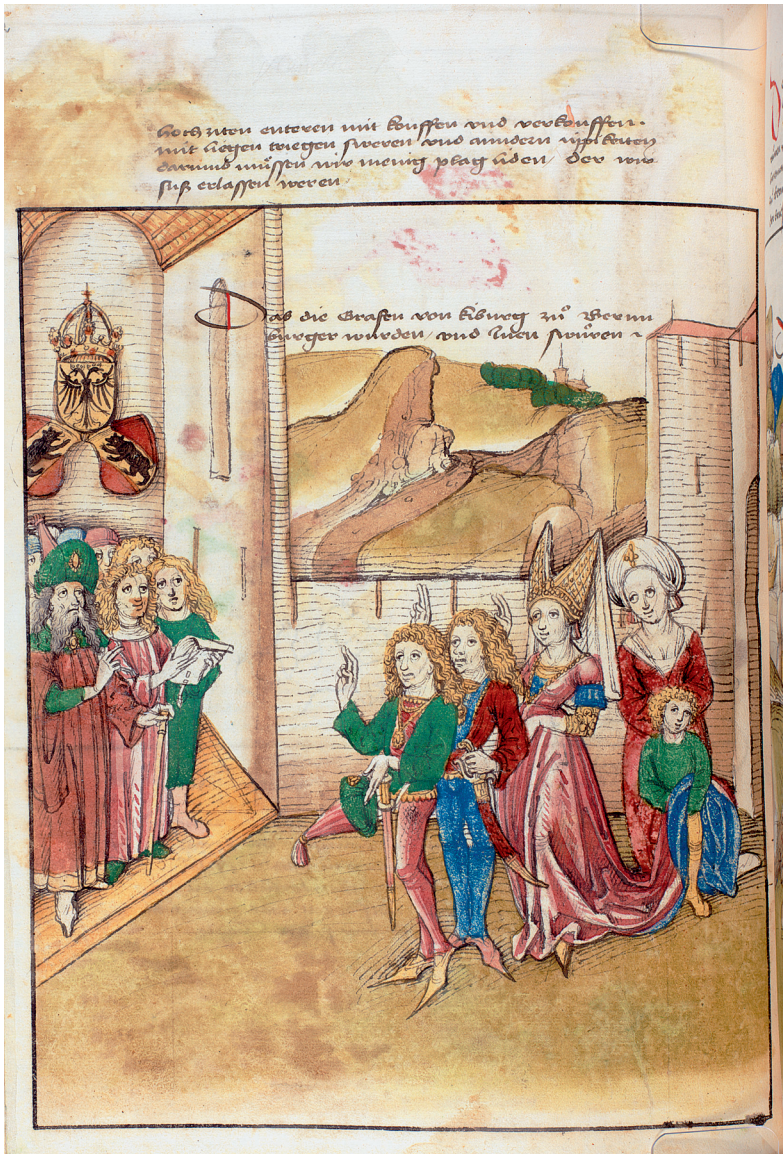 hochziten enteren mit kouffen und verkouffen.
mit liegen triegen sweren und anndern
darumb müssen wir menig plag liden / der wir
suß erlassen weren /
Das die Grafen von kiburg zů Bernn
burger wurden / und Inen swůren